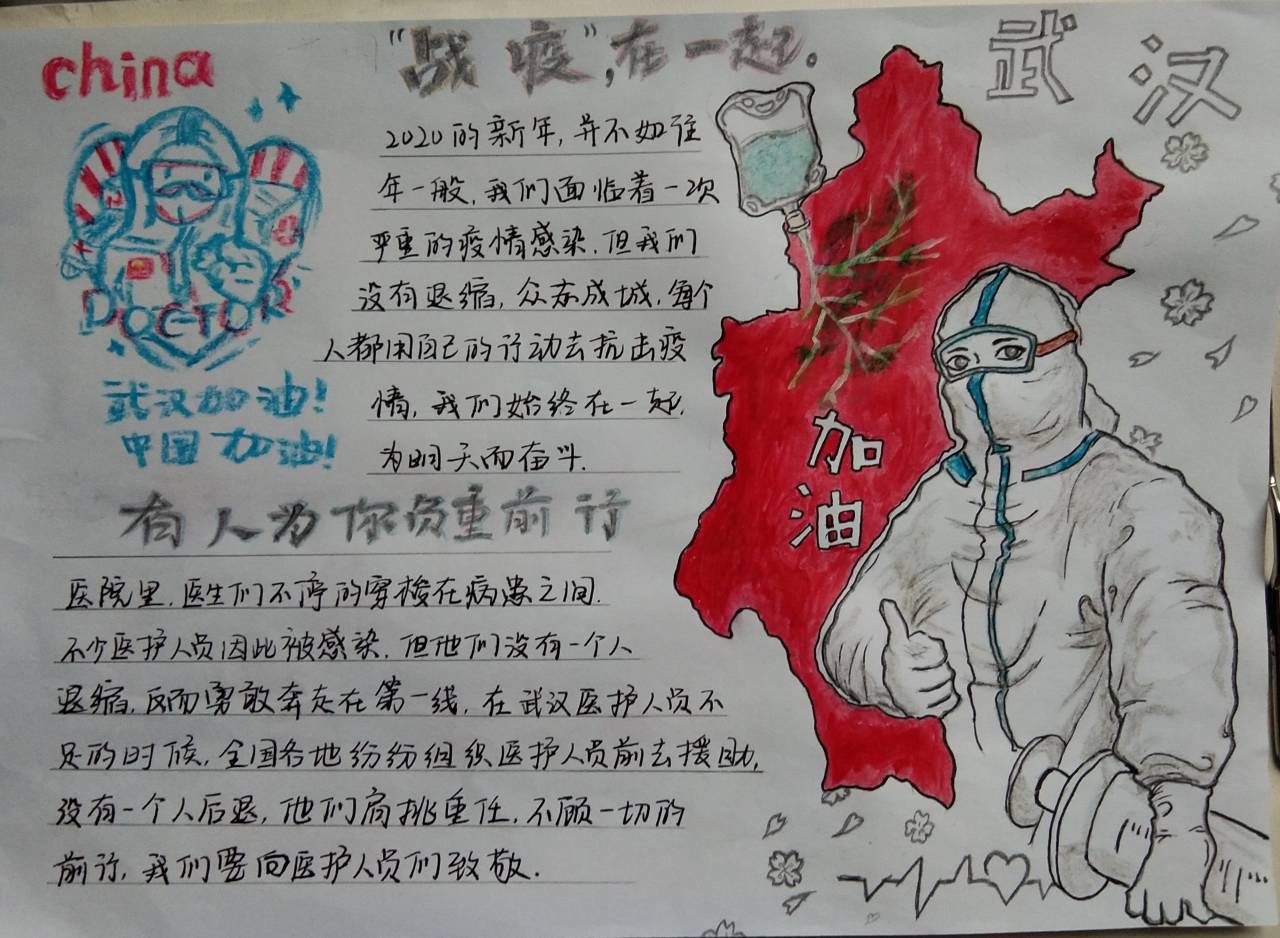 china
DOCTOR
武汉加油!
中国加油!
“战疫”,在一起.
2020的新年,并不如往
年一般,我们面临着一次
严重的疫情感染.但我们
没有退缩,众志成城,每个
人都用自己的行动去抗击疫
情,我们始终在一起,
为明天而奋斗.
有人为你负重前行
医院里,医生们不停的穿梭在病患之间.
不少医护人员因此被感染.但他们没有一个人
退缩,反而勇敢奔走在第一线,在武汉医护人员不
足的时候,全国各地纷纷组织医护人员前去援助,
没有一个人后退,他们肩挑重任,不顾一切的
前行,我们要向医护人员们致敬.
武汉
加
油